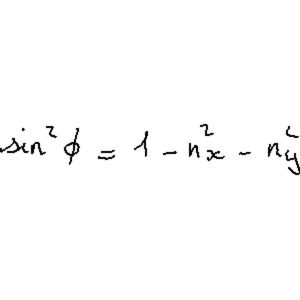 sin² ϕ = 1 - n_x² - n_y²